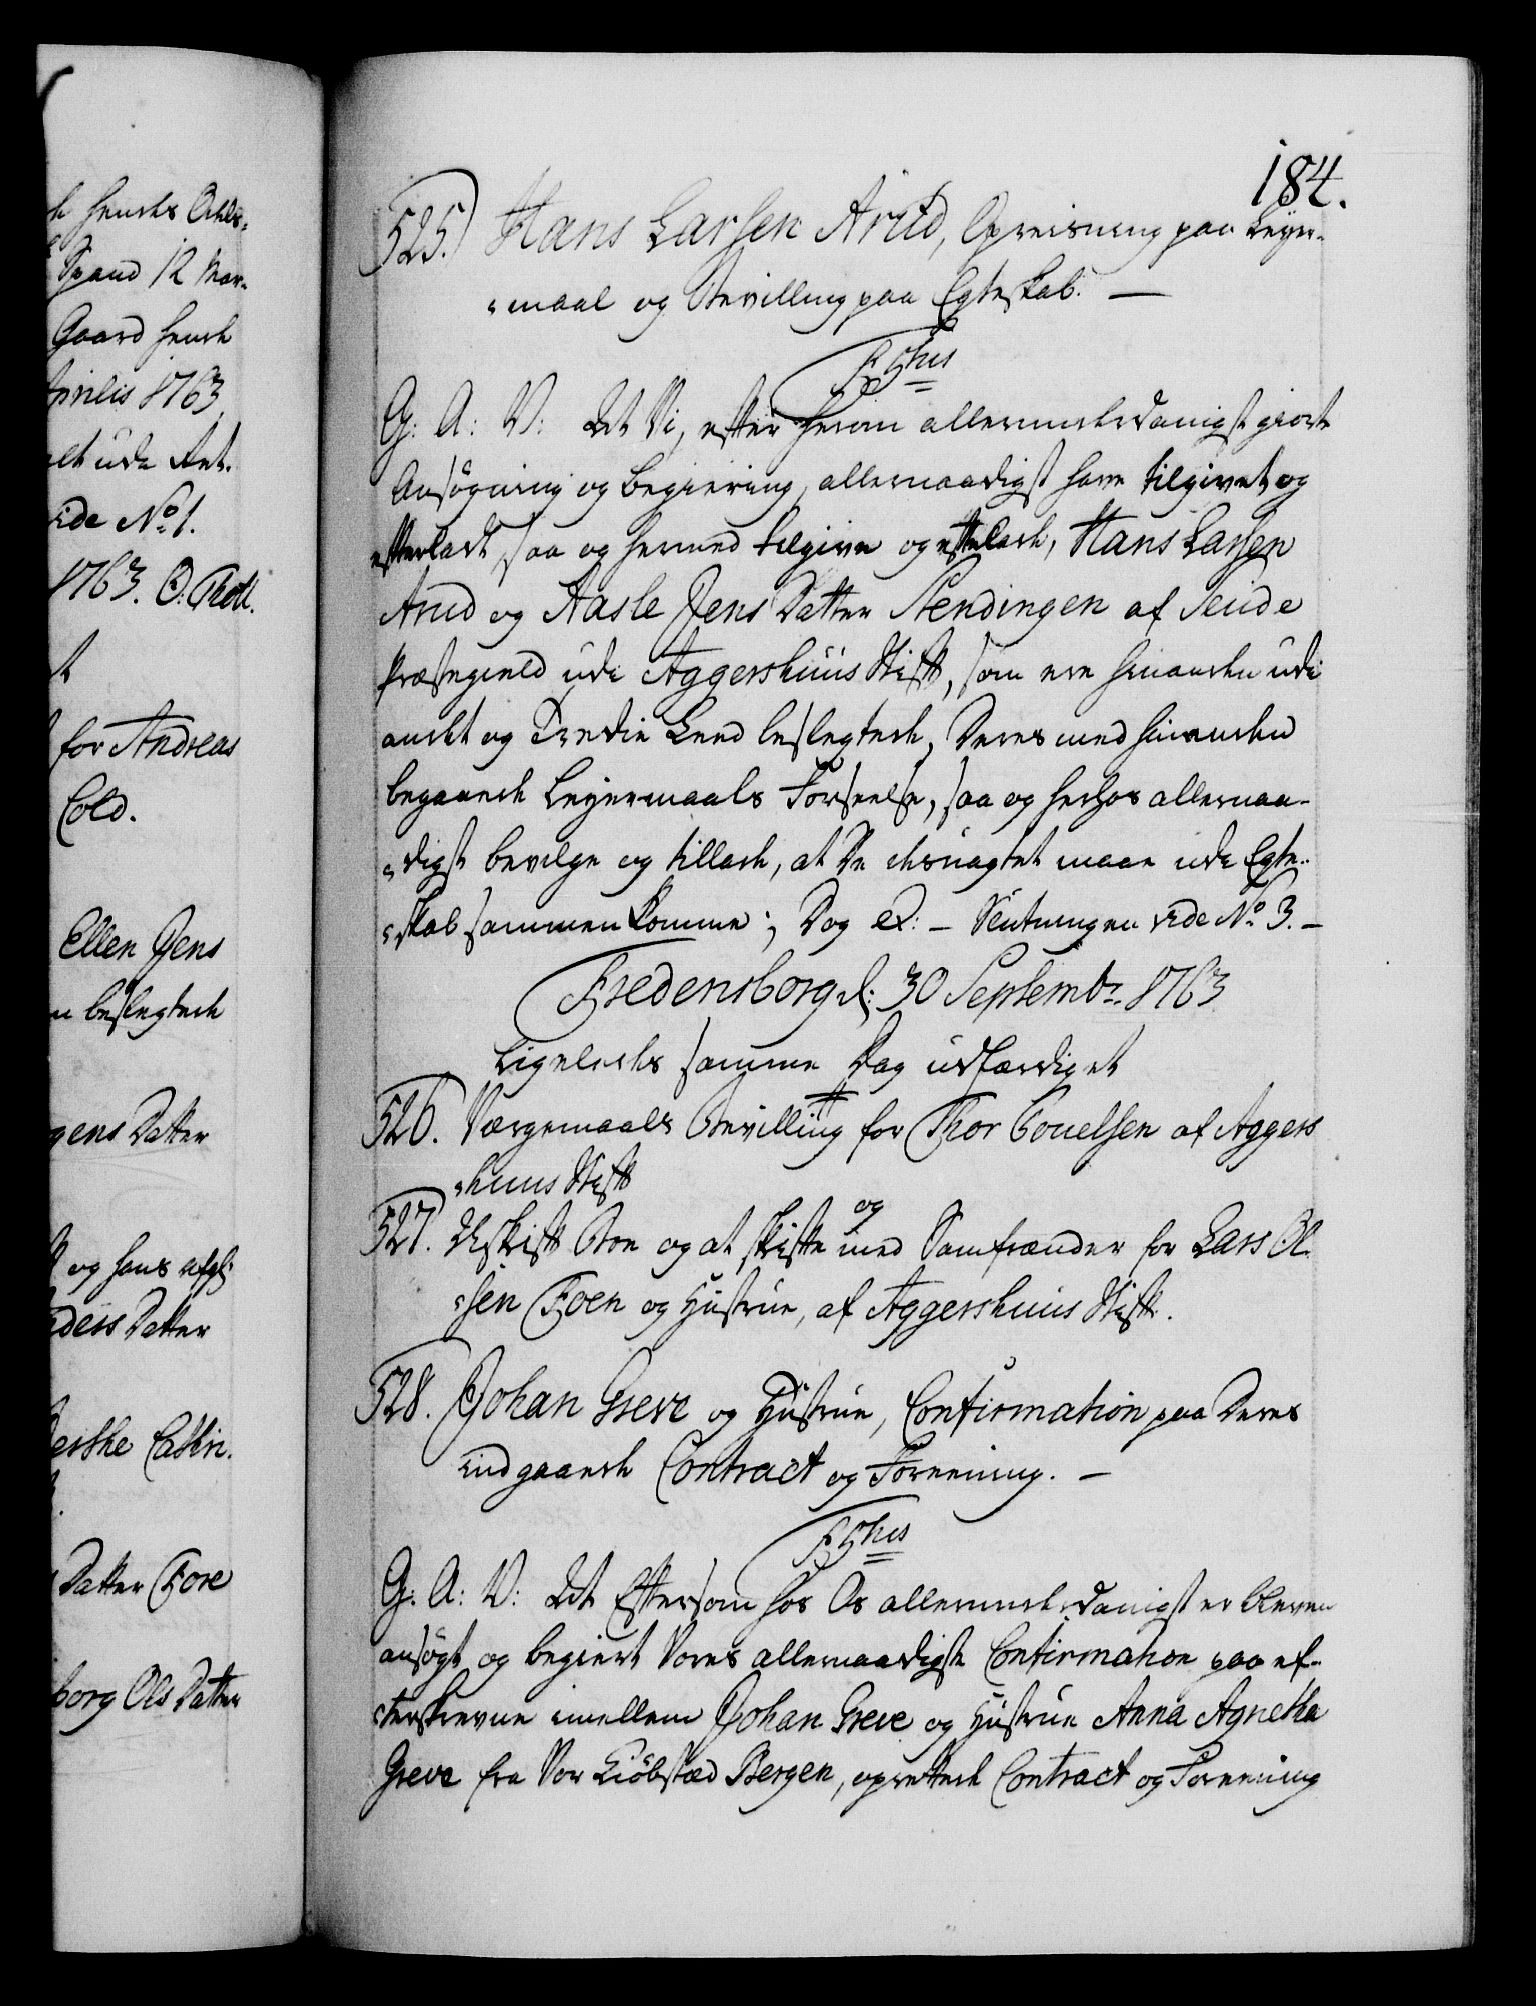 184.
525.) Hans Larsen Arud, Opreisning paa Leyer-
maal og Bevilling paa Egteskab. —
F 5tus
G: A: V: Det Vi, efter herom allerunderdanigst giort
Ansøgning og begiering, allernaadigst have tilgivet og
efterladt, saa og hermed tilgive og efterlade, Hans Larsen
Arud og Aasle Jens Datter Stendingen af
Præstegield udi Aggershuus Stift, som ere hinanden udi
andet og Tredie Leed beslegtede, Deres med hinanden
begaaede Leyermaals Forseelse, saa og herhos allernaa-
digst bevilge og tillade, at De desuagtet maae udi Egte-
skab sammen komme; Dog &: — Slutningen vide No 3. —
Fredensborg d: 30 Septembr. 1763
Ligeledes samme Dag udfærdiget
526. Værgemaals Bevilling for Thor Gouelsen af Aggers
huus Stift
527. Uskift Boe og at skifte og med Samfrænder for Lars Ol-
sen Foen og Hustrue, af Aggershuus Stift.
528. Johan Greve og Hustrue, Confirmation paa Deres
indgaaede Contract og Foreening. —
F 5tus
G: A: V: Det Eftersom hos Os allerunderdanigst er bleven
ansøgt og begiert Vores allernaadigste Confirmation paa ef-
terskrevne imellem Johan Greve og Hustrue Anna Agnetha
Greve fra Vor Kiøbstæd Bergen, oprettede Contract og Foreening
Spand 12 Mar-
Gaard hende
Aprilis 1763
vide No 1.
1763. O. Thott.
for Andreas
Cold.
Ellen Jens
beslegtede
gens Datter
og hans afg:
ders Datter
Cathri.
Datter Fore
borg Ols Datter